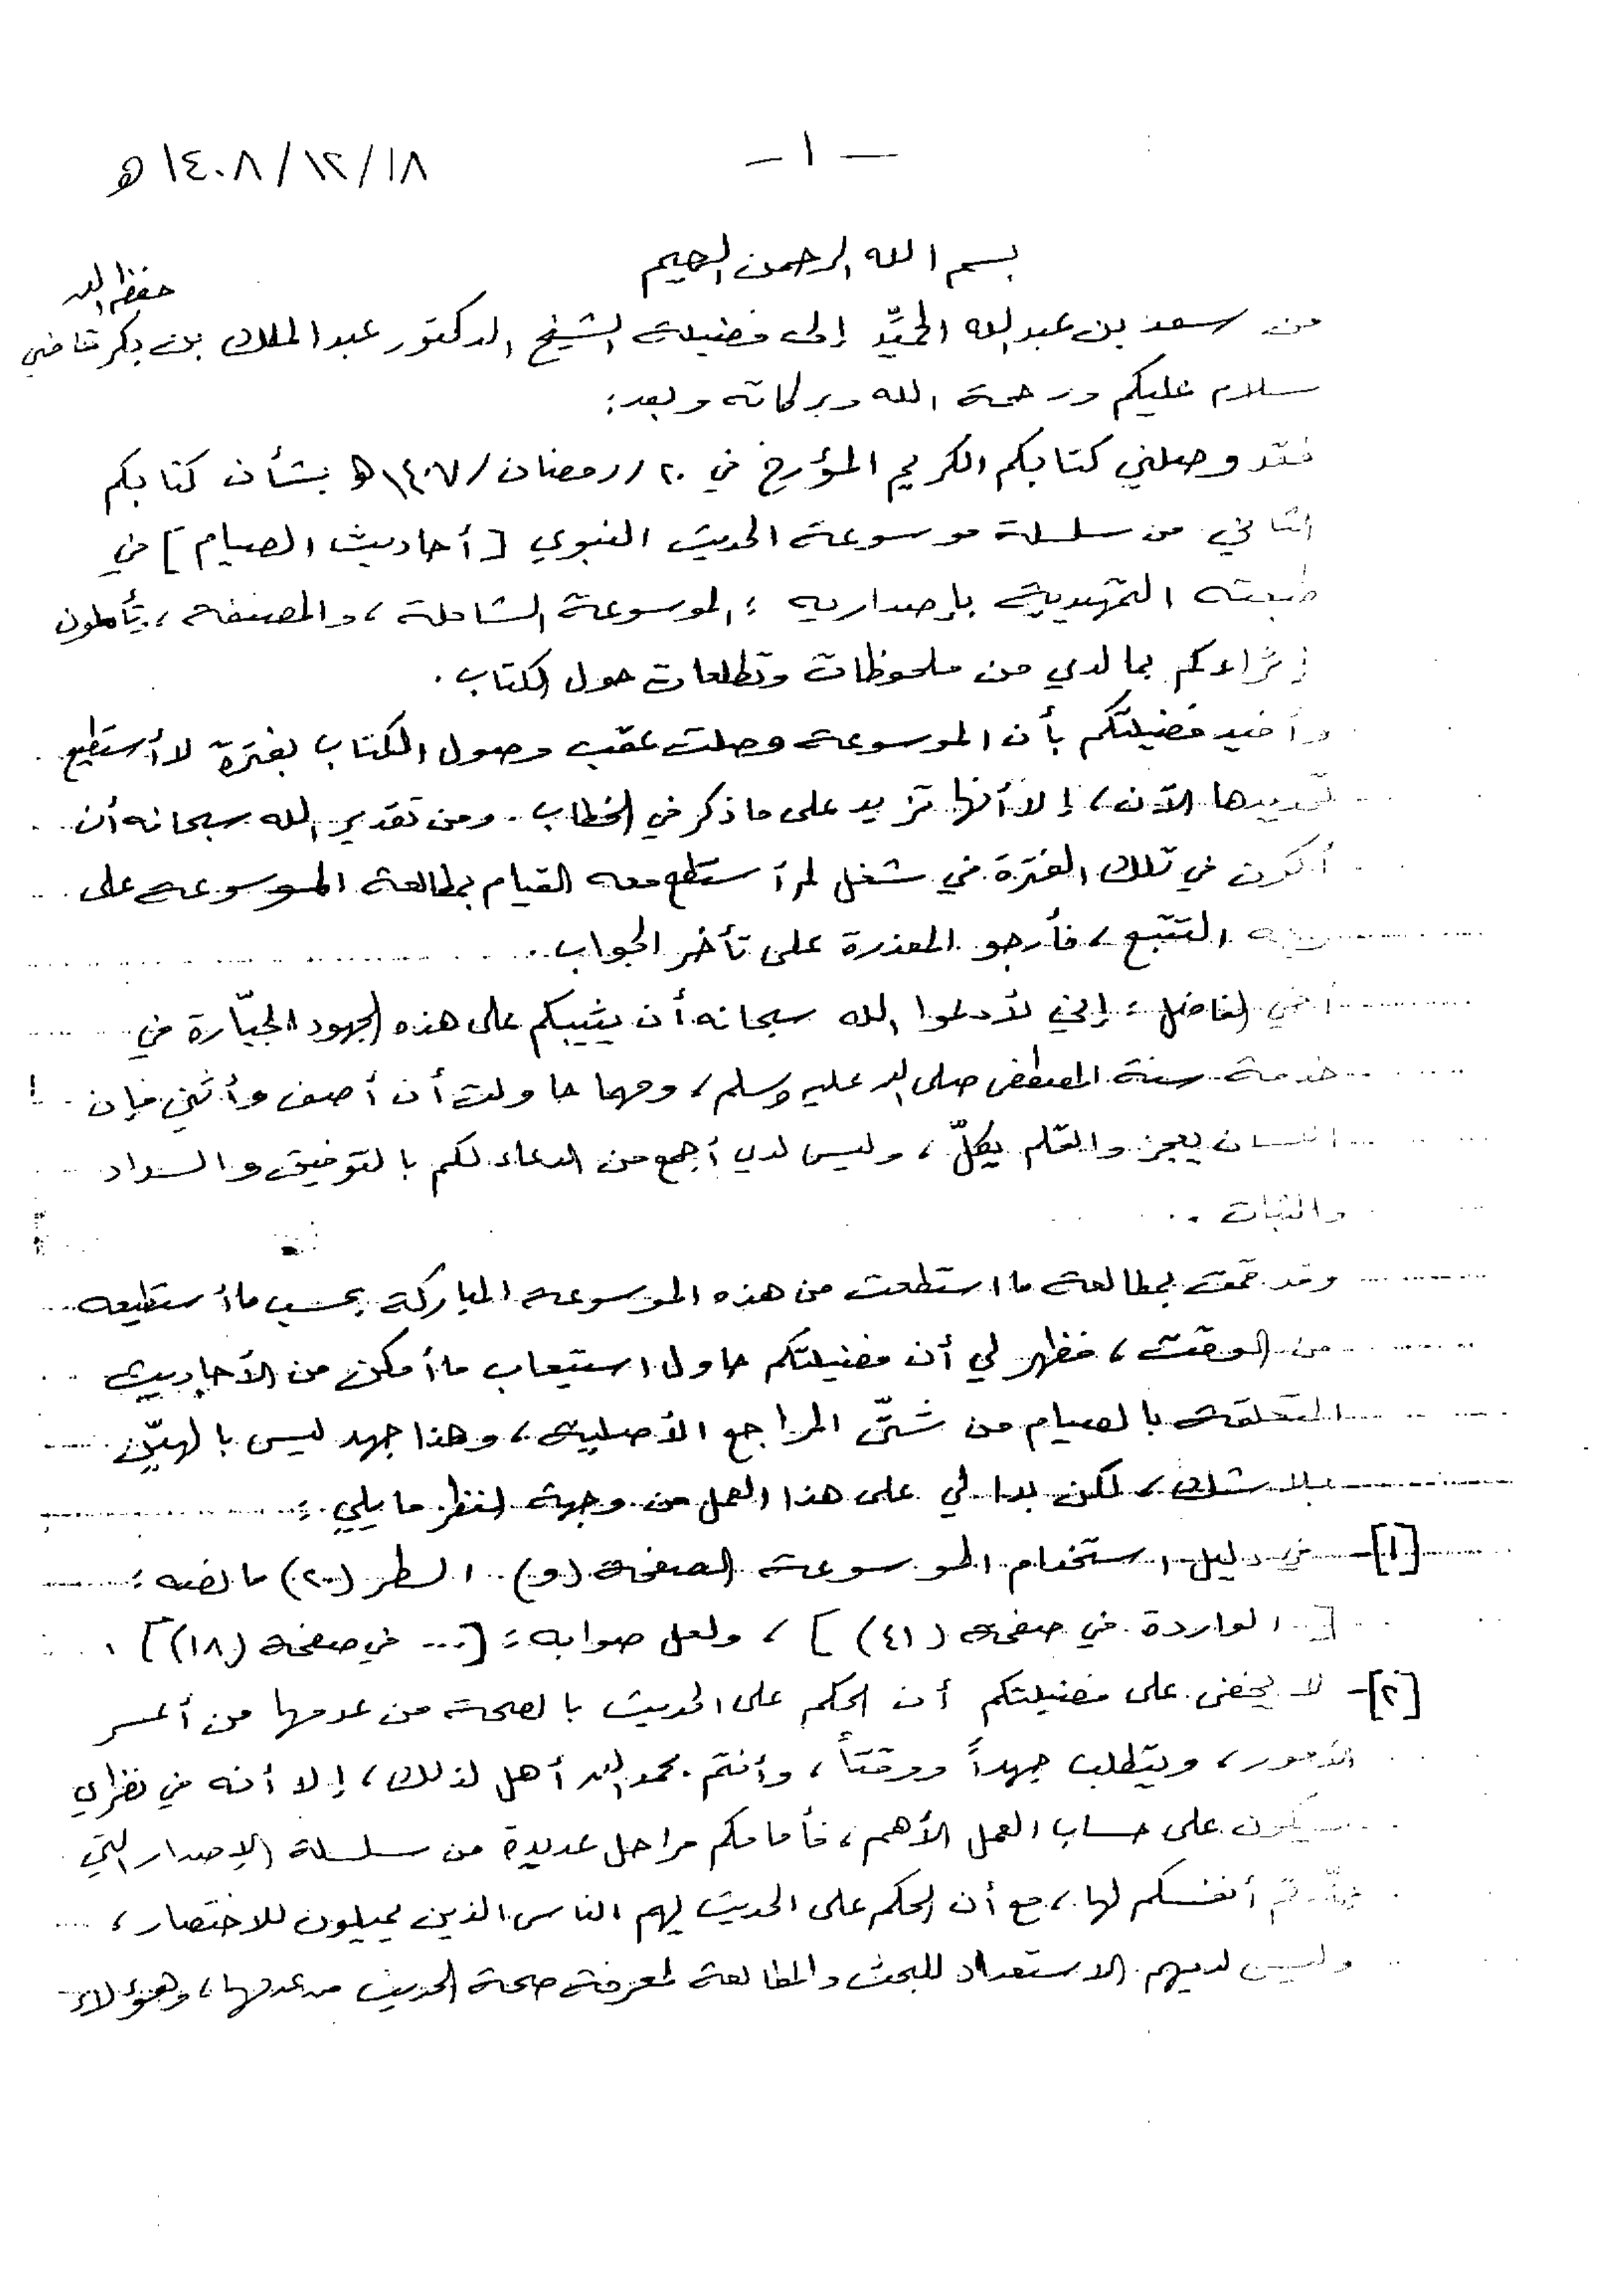 ١٤٠٨/١٢/١٨ هـ
— ١ —
بسم الله الرحمن الرحيم
حفظه الله
من سعد بن عبدالله الحميِّد إلى فضيلة الشيخ الدكتور عبدالملك بن بكر قاضي
سلام عليكم ورحمة الله وبركاته وبعد:
فقد وصلني كتابكم الكريم المؤرخ في ٢٠/رمضان/١٤٠٧هـ بشأن كتابكم
الثاني من سلسلة موسوعة الحديث النبوي [أحاديث الصيام] في
طبعته التمهيدية بإصداريه: الموسوعة الشاملة، والمصنفة، تأملون
إثراءكم بما لدي من ملحوظات وتطلعات حول الكتاب.
وأفيد فضيلتكم بأن الموسوعة وصلت عقب وصول الكتاب بفترة لا أستطيع
تحديدها الآن، إلا أنها تزيد على ما ذكر في الخطاب. ومن تقدير الله سبحانه أن
أكون في تلك الفترة في شغل لم أستطع معه القيام بمطالعة الموسوعة على
وجه التتبع، فأرجو المعذرة على تأخر الجواب.
أخي الفاضل: إني لأدعوا الله سبحانه أن يثيبكم على هذه الجهود الجبّارة في
خدمة سنة المصطفى صلى الله عليه وسلم، ومهما حاولت أن أصف وأثني فإن
اللسان يعجز والقلم يكلّ، وليس لدي أجمع من الدعاء لكم بالتوفيق والسداد
والثبات.
وقد قمت بمطالعة ما استطعت من هذه الموسوعة المباركة بحسب ما أستطيعه
من الوقت، فظهر لي أن فضيلتكم حاول استيعاب ما أمكن من الأحاديث
المتعلقة بالصيام من شتّى المراجع الأصلية، وهذا جهد ليس بالهيّن
بلا شك، لكن بدا لي على هذا العمل من وجهة النظر ما يلي:
[١]- في دليل استخدام الموسوعة الصفحة (و) السطر (٢٠) ما نصه:
[.. الواردة في صفحة (٤١)]، ولعل صوابه: [... في صفحة (١٨)].
[٢]- لا يخفى على فضيلتكم أن الحكم على الحديث بالصحة من عدمها من أعسر
الأمور، ويتطلب جهداً ووقتاً، وأنتم بحمد الله أهل لذلك، إلا أنه في نظري
سيكون على حساب العمل الأهم، فأمامكم مراحل عديدة من سلسلة الإصدار التي
أنفسكم لها، مع أن الحكم على الحديث يهم الناس الذين يميلون للاختصار،
وليس لديهم الاستعداد للبحث والمطالعة لمعرفة صحة الحديث من عدمها، وهؤلاء